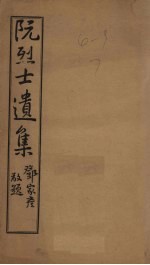 阮烈士遺集
鄧家彥
敬題